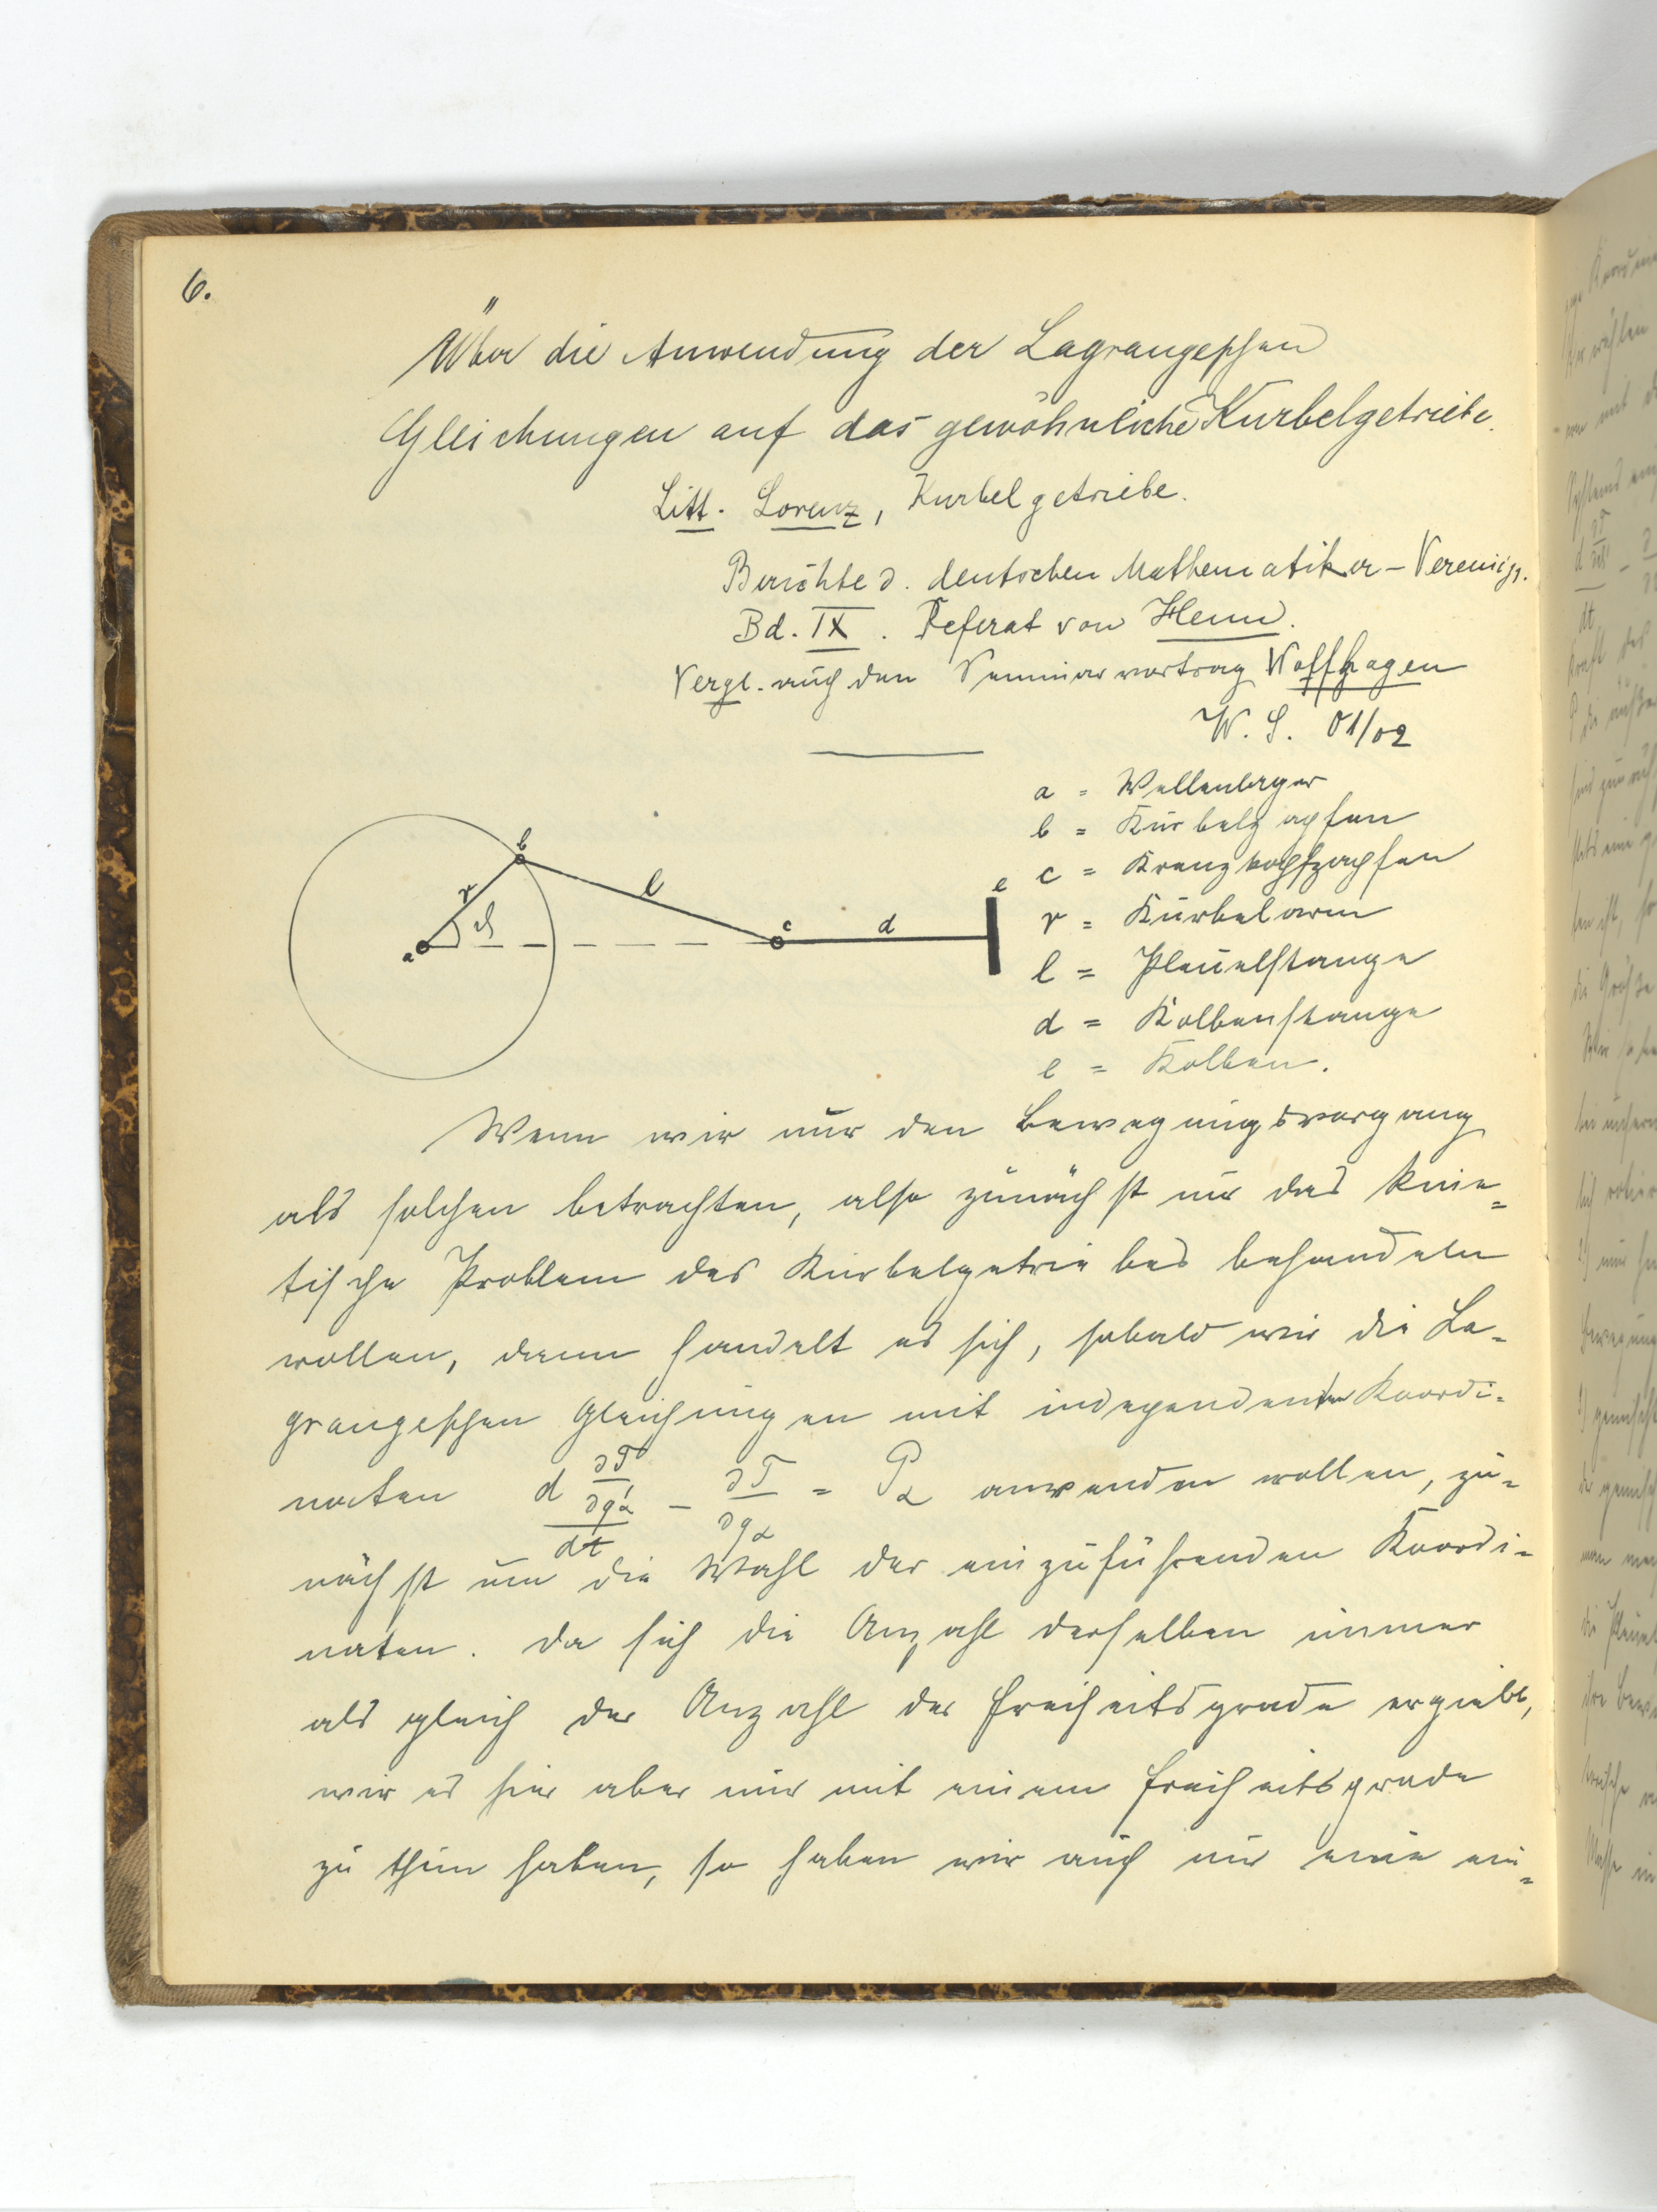 6.
Über die Anwendung der Lagrangeschen
Gleichungen auf das gewöhnliche Kurbelgetriebe.
Litt. Lorenz, Kurbelgetriebe.
Berichte d. deutschen Mathematiker-Vereinig.
Bd. IX. Referat von Heun.
Vergl. auch den Seminarvortrag Noffhagen
W. S. 01/02
a = Wellenlager
b = Kurbelzapfen
c = Kreuzkopfzapfen
r = Kurbelarm
l = Pleuelstange
d = Kolbenstange
e = Kolben.
a r ϑ b l c d e
Wenn wir nur den Bewegungsvorgang
als solchen betrachten, also zunächst nur das kine=
tische Problem des Kurbelgetriebes behandeln
wollen, dann handelt es sich, sobald wir die La-
grangeschen Gleichungen mit independenten Koordi-
naten d ∂T/∂q'α / dt - ∂T/∂qα = Pα anwenden wollen, zu=
nächst um die Wahl der einzuführenden Koordi-
naten. Da sich die Anzahl derselben immer
als gleich der Anzahl der Freiheitsgrade ergiebt,
wir es hier aber nur mit einem Freiheitsgrade
zu thun haben, so haben wir auch nur eine ein=